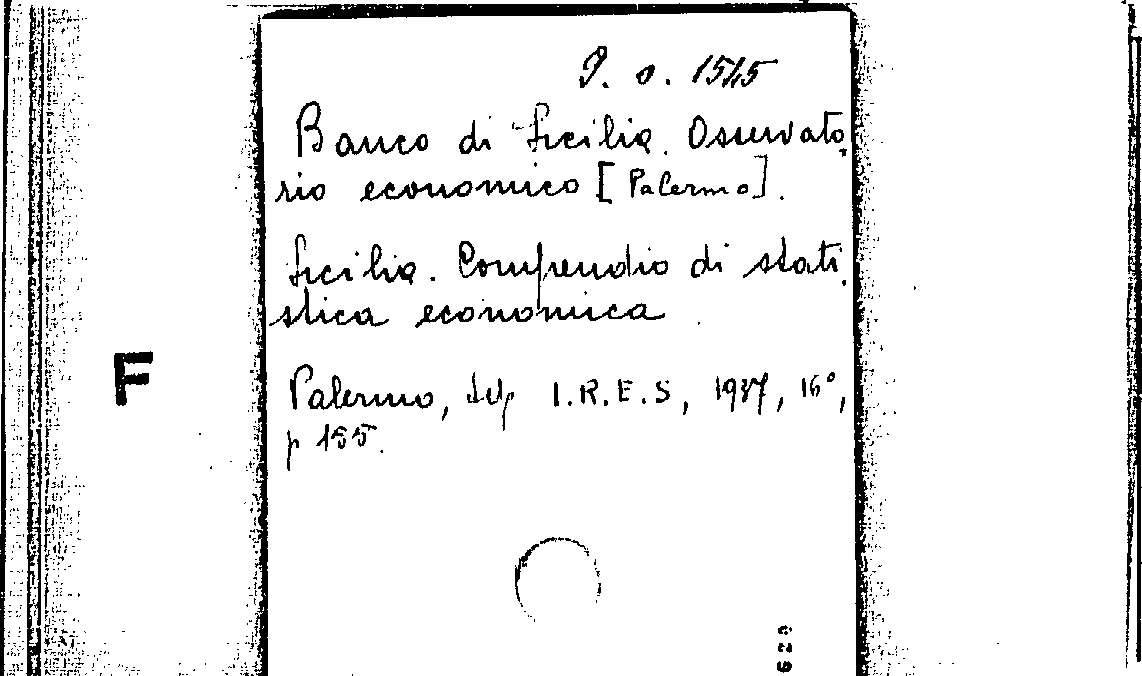 P. o. 1515
Banco di Sicilia. Osservato.
rio economico [Palermo].
Sicilia. Compendio di stati.
stica economica
F
Palermo, I.R.E.S, 1937, 16°,
p 155.
629